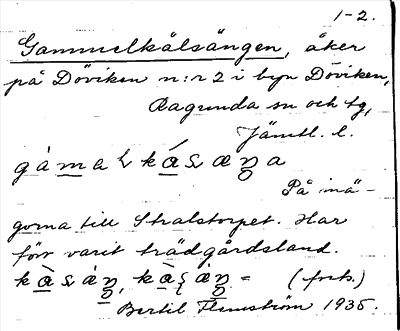 1-2.
Gammelkålsängen, åker
på Döviken n:r 2 i byn Döviken,
Ragunda sn och tg,
Jämtl. l.
På inä-
gorna till Stralstorpet. Har
förr varit trädgårdsland.
(forts.)
Bertil Flemström 1935.